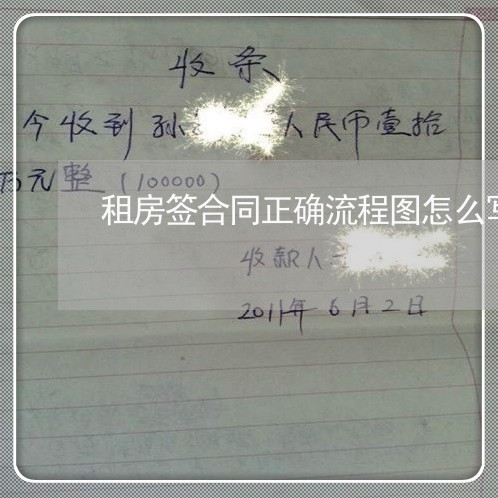 收条
今收到孙 人民币壹拾
万元整(100000)
租房签合同正确流程图怎么写
收款人
2011年6月2日